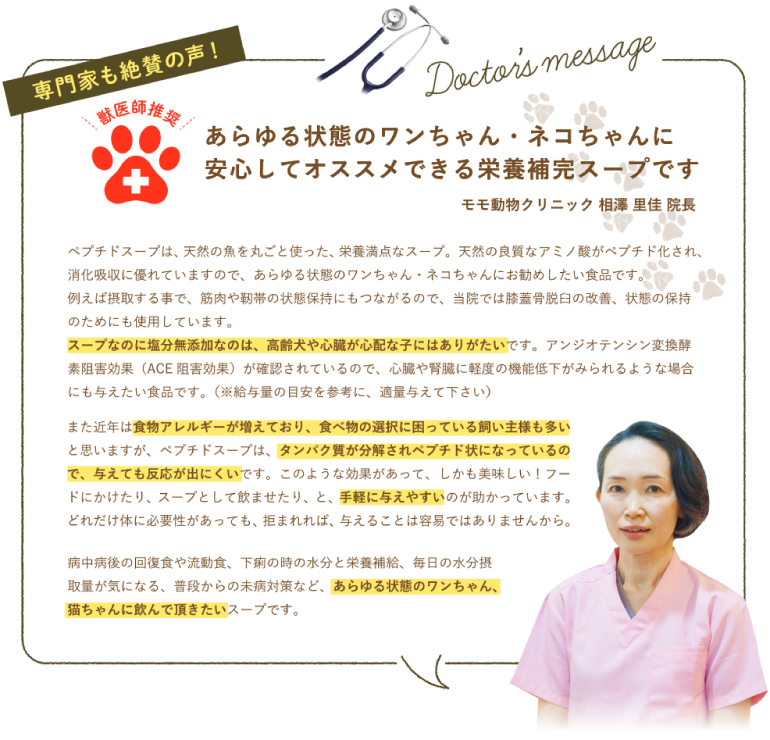 専門家も絶賛の声！
Doctor's message
獣医師推奨
あらゆる状態のワンちゃん・ネコちゃんに
安心してオススメできる栄養補完スープです
モモ動物クリニック 相澤 里佳 院長
ペプチドスープは、天然の魚を丸ごと使った、栄養満点なスープ。天然の良質なアミノ酸がペプチド化され、
消化吸収に優れていますので、あらゆる状態のワンちゃん・ネコちゃんにお勧めしたい食品です。
例えば摂取する事で、筋肉や靭帯の状態保持にもつながるので、当院では膝蓋骨脱臼の改善、状態の保持
のためにも使用しています。
スープなのに塩分無添加なのは、高齢犬や心臓が心配な子にはありがたいです。アンジオテンシン変換酵
素阻害効果（ACE 阻害効果）が確認されているので、心臓や腎臓に軽度の機能低下がみられるような場合
にも与えたい食品です。（※給与量の目安を参考に、適量与えて下さい）
また近年は食物アレルギーが増えており、食べ物の選択に困っている飼い主様も多い
と思いますが、ペプチドスープは、タンパク質が分解されペプチド状になっているの
で、与えても反応が出にくいです。このような効果があって、しかも美味しい！フー
ドにかけたり、スープとして飲ませたり、と、手軽に与えやすいのが助かっています。
どれだけ体に必要性があっても、拒まれれば、与えることは容易ではありませんから。
病中病後の回復食や流動食、下痢の時の水分と栄養補給、毎日の水分摂
取量が気になる、普段からの未病対策など、あらゆる状態のワンちゃん、
猫ちゃんに飲んで頂きたいスープです。